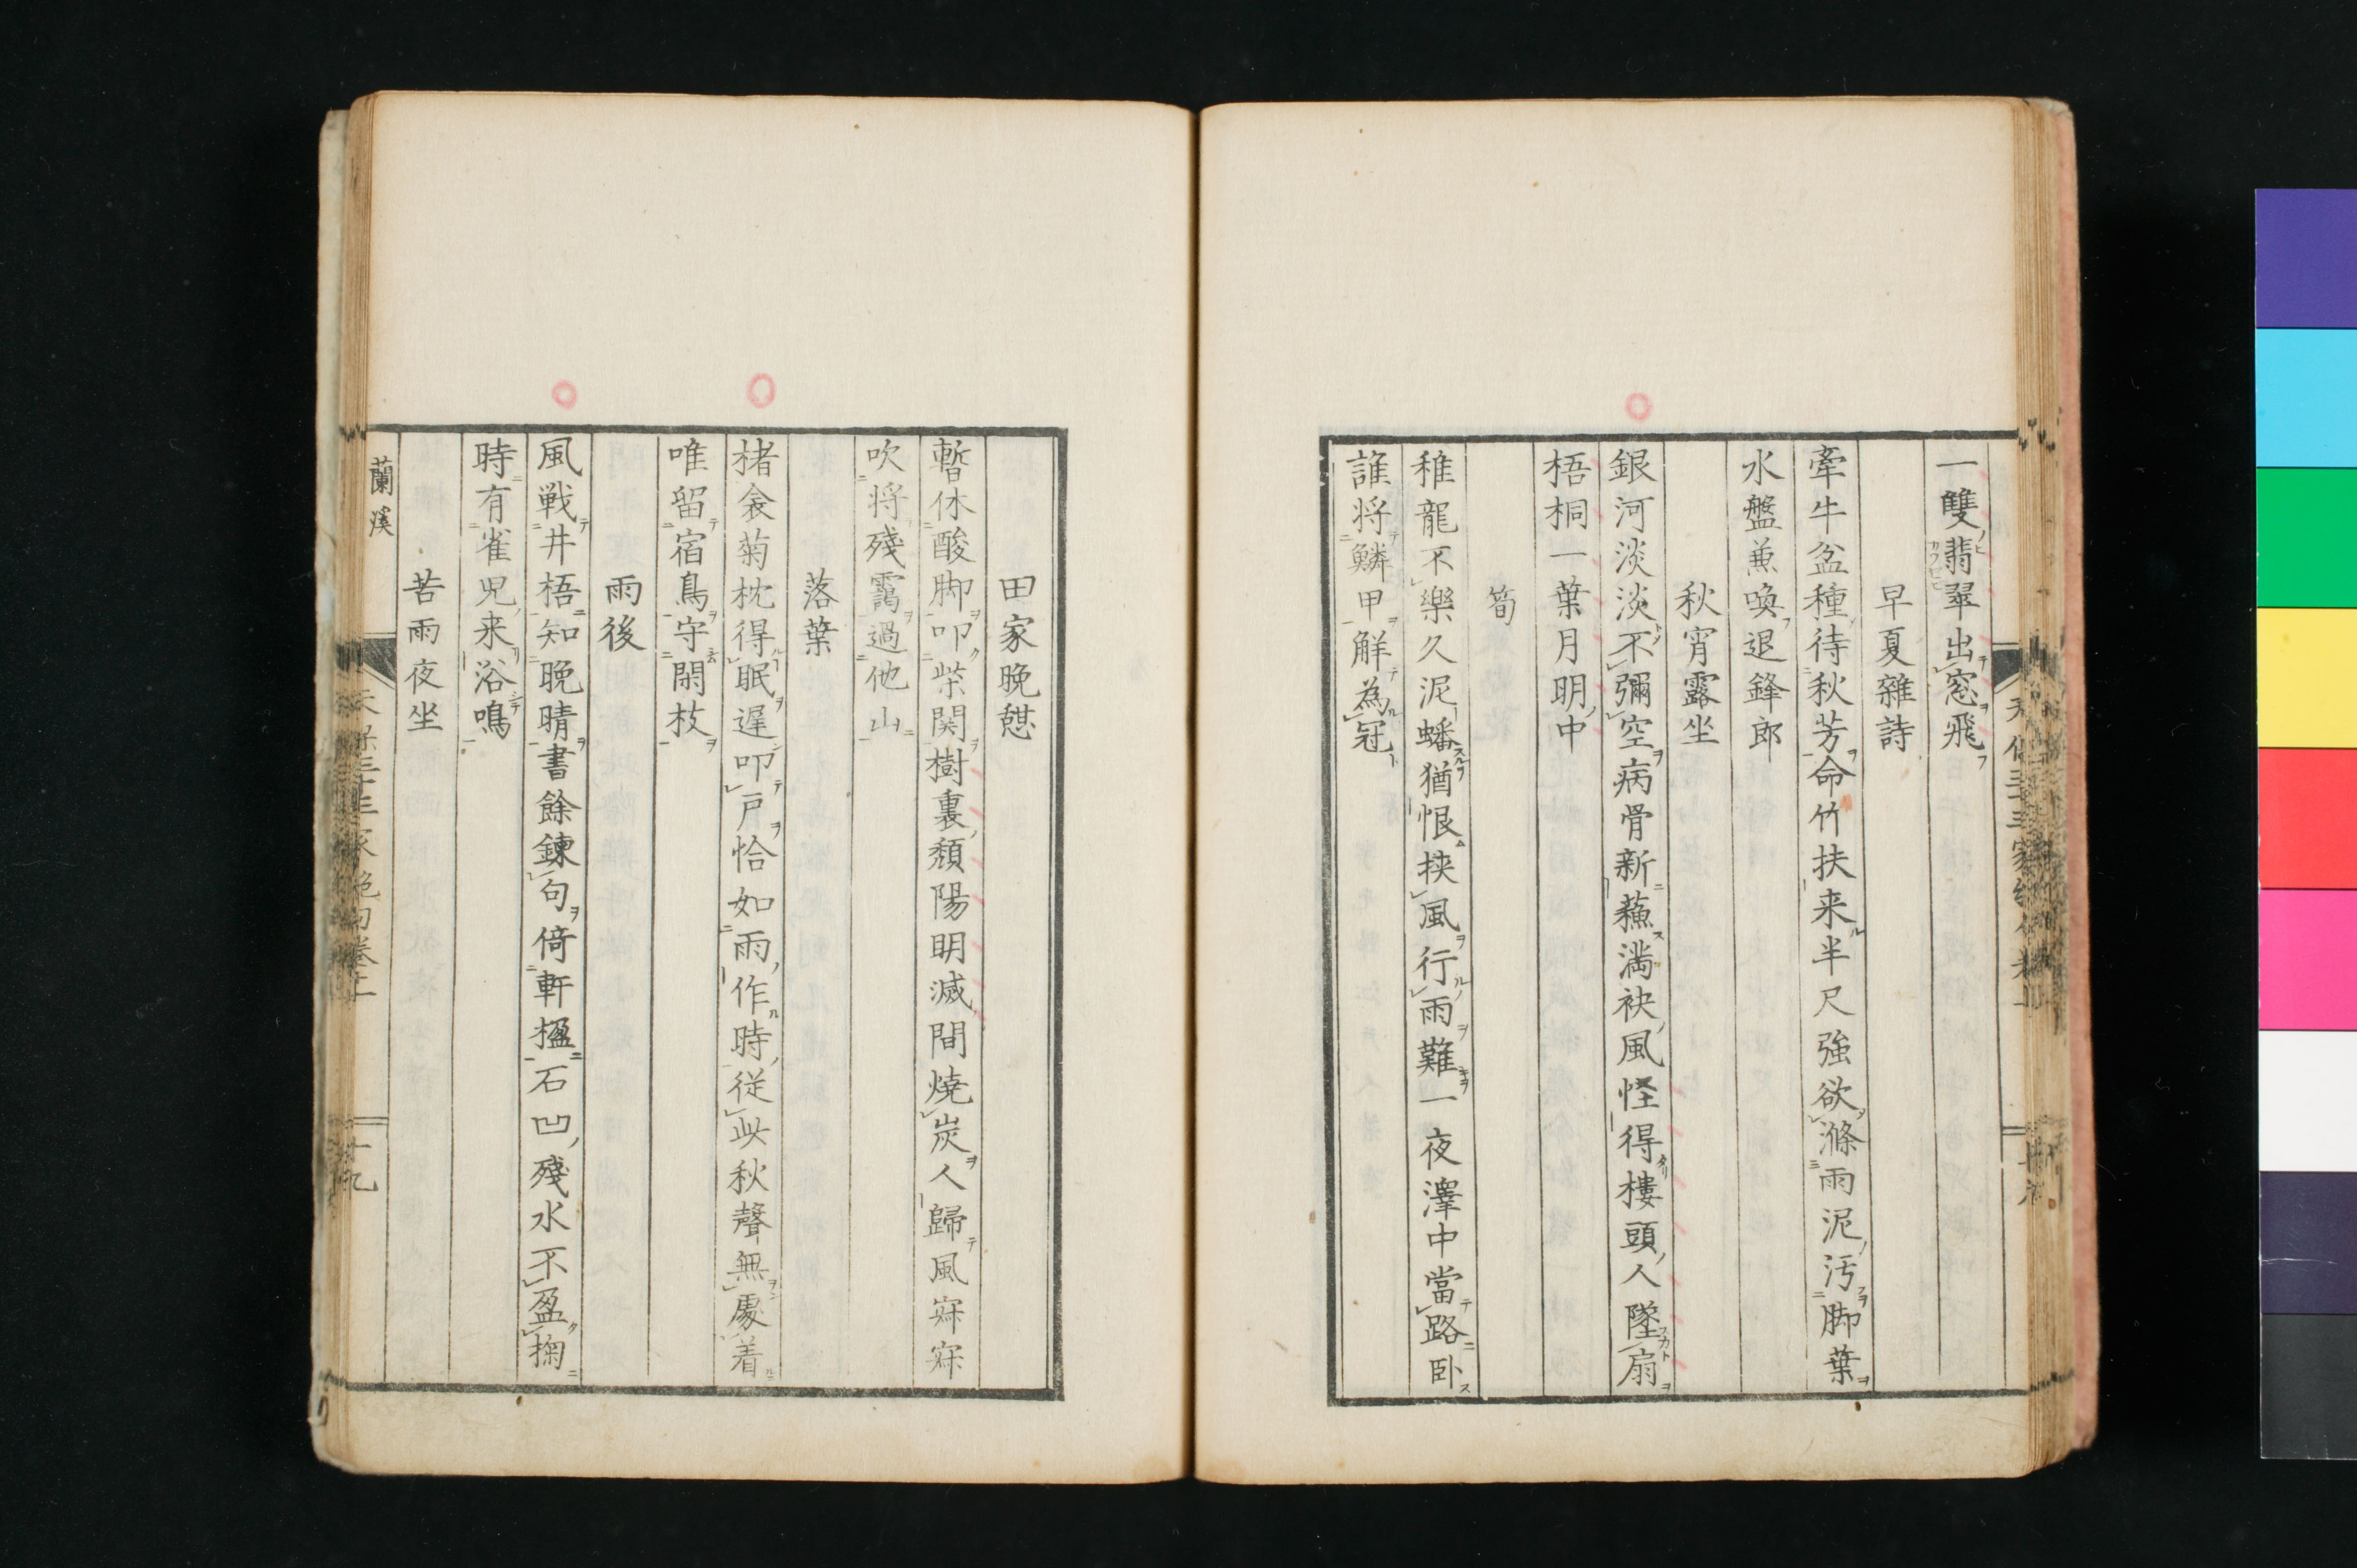 一雙翡翠出窓飛
早夏雜詩
牽牛盆種待秋芳命竹扶来半尺強欲滌雨泥汚脚葉
水盤兼喚退鋒郎
秋宵露坐
銀河淡淡不彌空病骨新蘓満袂風怪得樓頭人墜扇
梧桐一葉月明中
筍
稚龍不樂久泥蟠猶恨挟風行雨難一夜澤中當路卧
誰将鱗甲解為冠
田家晩憩
暫休酸脚叩柴関樹裏頽陽明滅間焼炭人歸風寐寐
吹将殘靄過他山
落葉
楮衾菊枕得眠遅叩戸恰如雨作時従此秋聲無處着
唯留宿鳥守閑枝
雨後
風戦井梧知晩晴書餘錬句倚軒楹石凹殘水不盈掬
時有雀児来浴鳴
苦雨夜坐
蘭溪
天保三十三家絶句巻十
十九